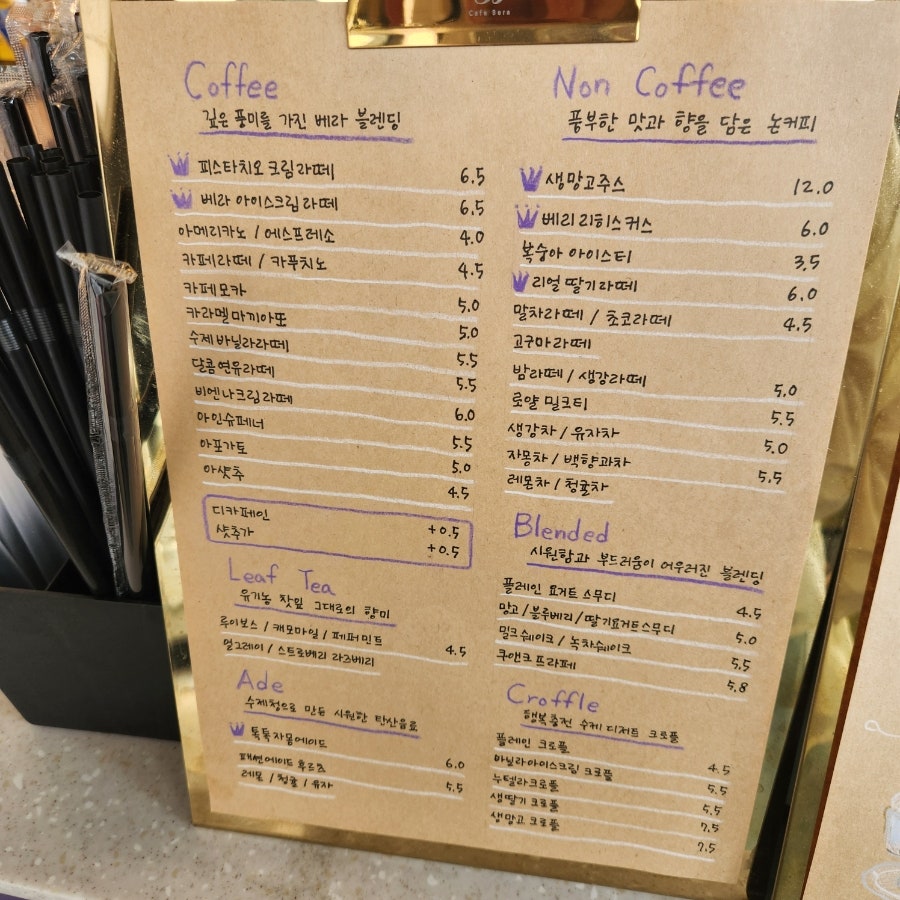 Cafe Bera
Coffee
깊은 풍미를 가진 베라 블렌딩
피스타치오 크림라떼 6.5
베라 아이스크림라떼 6.5
아메리카노 / 에스프레소 4.0
카페라떼 / 카푸치노 4.5
카페모카 5.0
카라멜마끼아또 5.0
수제바닐라라떼 5.5
달콤연유라떼 5.5
비엔나크림라떼 6.0
아인슈페너 5.5
아포가토 5.0
아샷추 4.5
디카페인 +0.5
샷추가 +0.5
Leaf Tea
유기농 찻잎 그대로의 향미
루이보스 / 캐모마일 / 페퍼민트 4.5
얼그레이 / 스트로베리 라즈베리
Ade
수제청으로 만든 시원한 탄산음료
톡톡자몽에이드 6.0
패션에이드후르츠 5.5
레몬 / 청귤 / 유자
Non Coffee
풍부한 맛과 향을 담은 논커피
생망고주스 12.0
베리리히스커스 6.0
복숭아 아이스티 3.5
리얼딸기라떼 6.0
말차라떼 / 초코라떼 4.5
고구마라떼
밤라떼 / 생강라떼 5.0
로얄 밀크티 5.5
생강차 / 유자차 5.0
자몽차 / 백향과차 5.5
레몬차 / 청귤차
Blended
시원함과 부드러움이 어우러진 블렌딩
플레인 요거트 스무디 4.5
망고/블루베리/딸기요거트스무디 5.0
밀크쉐이크 / 녹차쉐이크 5.5
쿠앤크프라페 5.8
Croffle
행복충전 수제 디저트 크로플
플레인 크로플 4.5
바닐라아이스크림 크로플 5.5
누텔라크로플 5.5
생딸기 크로플 7.5
생망고 크로플 7.5